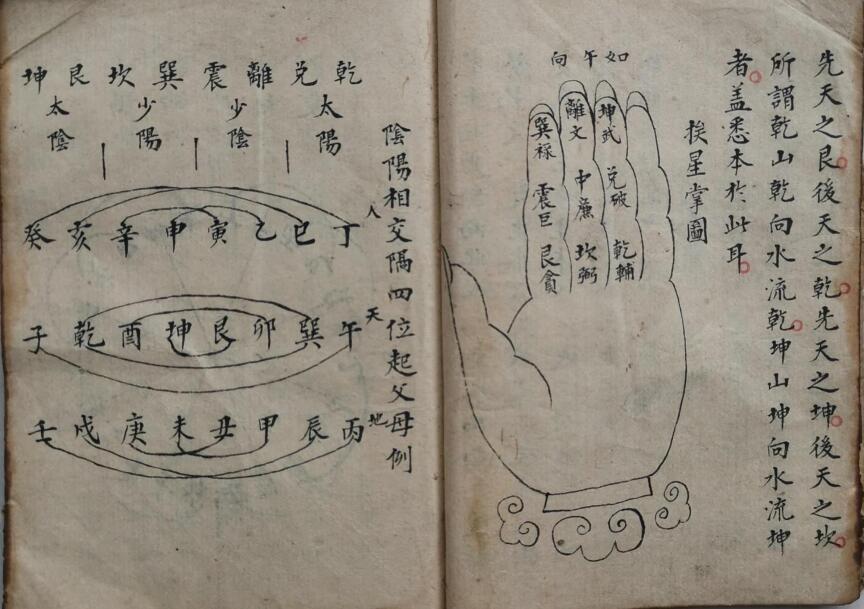 先天之艮後天之乾先天之坤後天之坎
所謂乾山乾向水流乾坤山坤向水流坤
者蓋悉本於此耳
挨星掌圖
如午向
坤武
兌破
乾輔
離文
中廉
坎弼
巽祿
震巨
艮貪
陰陽相交隔四位起父母例
乾兌離震巽坎艮坤
太陽
少陰
少陽
太陰
人
丁巳乙寅申辛亥癸
天
午巽卯艮坤酉乾子
地
丙辰甲丑未庚戌壬